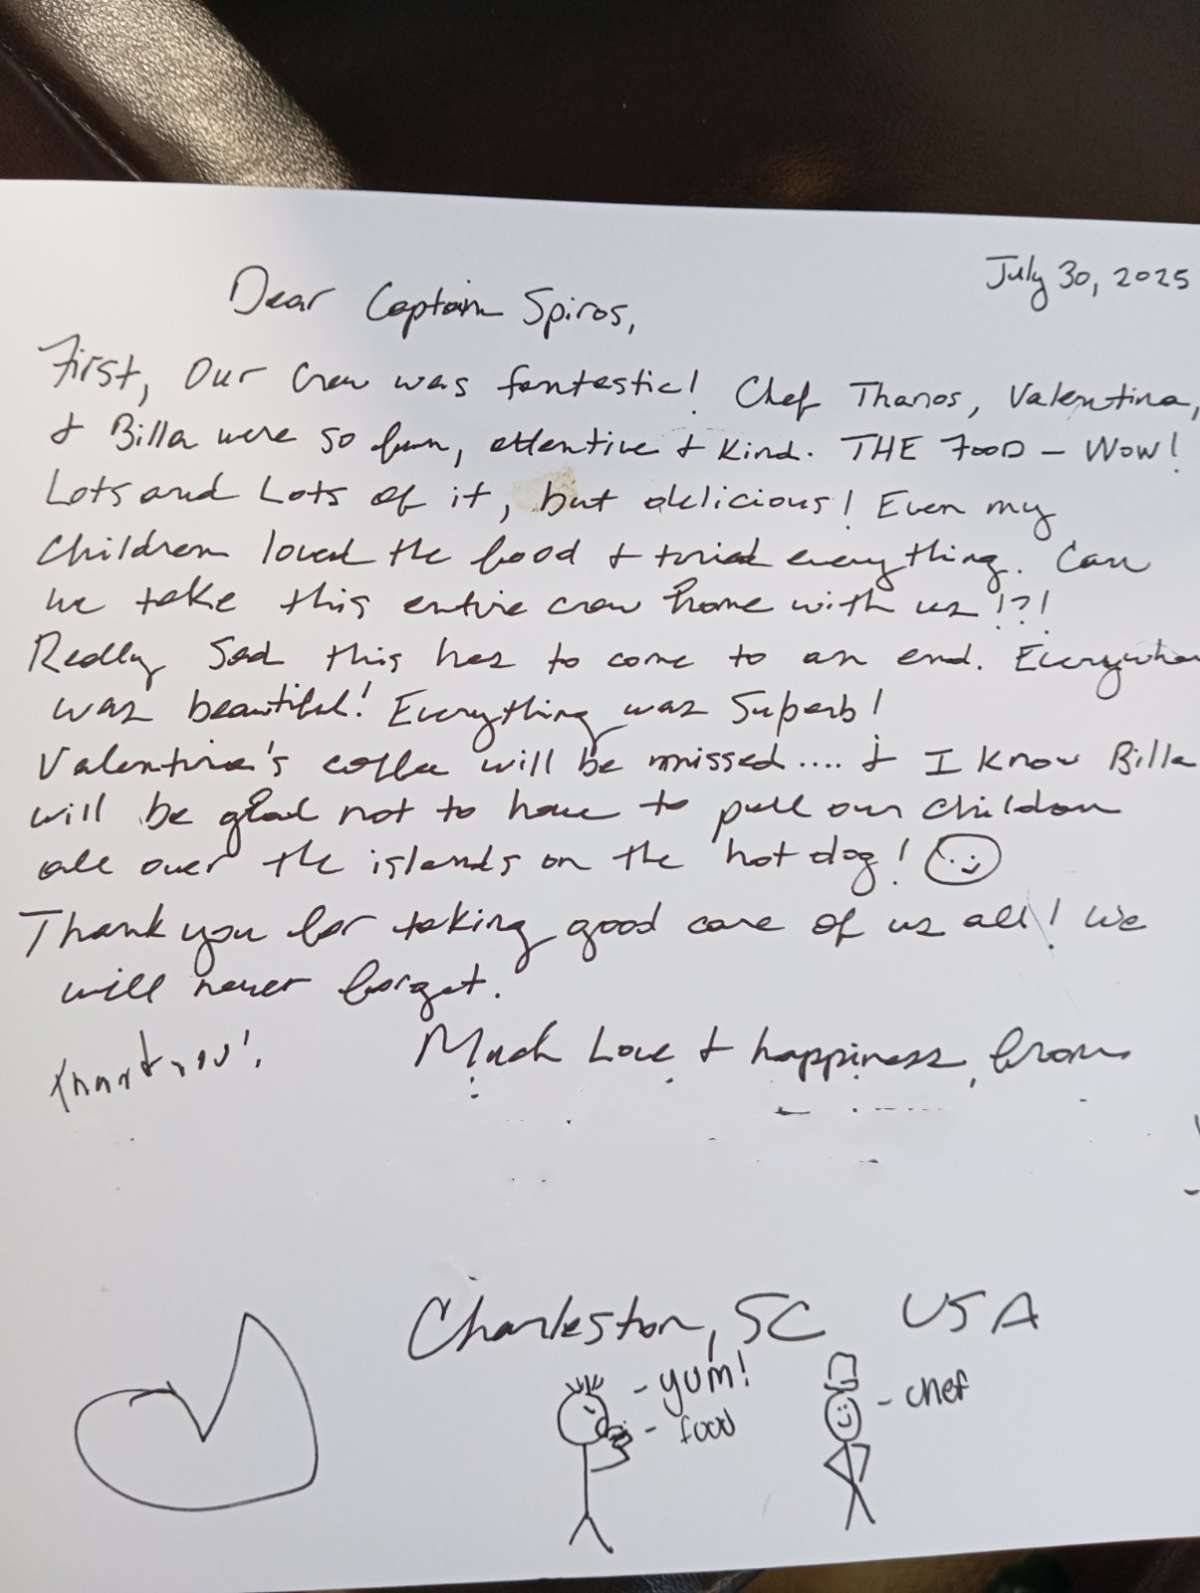 July 30, 2025
Dear Captain Spiros,
First, Our Crew was fantastic! Chef Thanos, Valentina,
& Billa were so fun, attentive & kind. THE FOOD - WOW!
Lots and Lots of it, but delicious! Even my
children loved the food & tried everything. Can
we take this entire crew home with us!?!
Really sad this has to come to an end. Everywhere
was beautiful! Everything was Superb!
Valentina's coffee will be missed.... & I know Billa
will be glad not to have to pull our children
all over the islands on the hot dog!
Thank you for taking good care of us all! We
will never forget.
Much Love & happiness, from
Thank you!
Charleston, SC USA
- yum!
- food
- chef